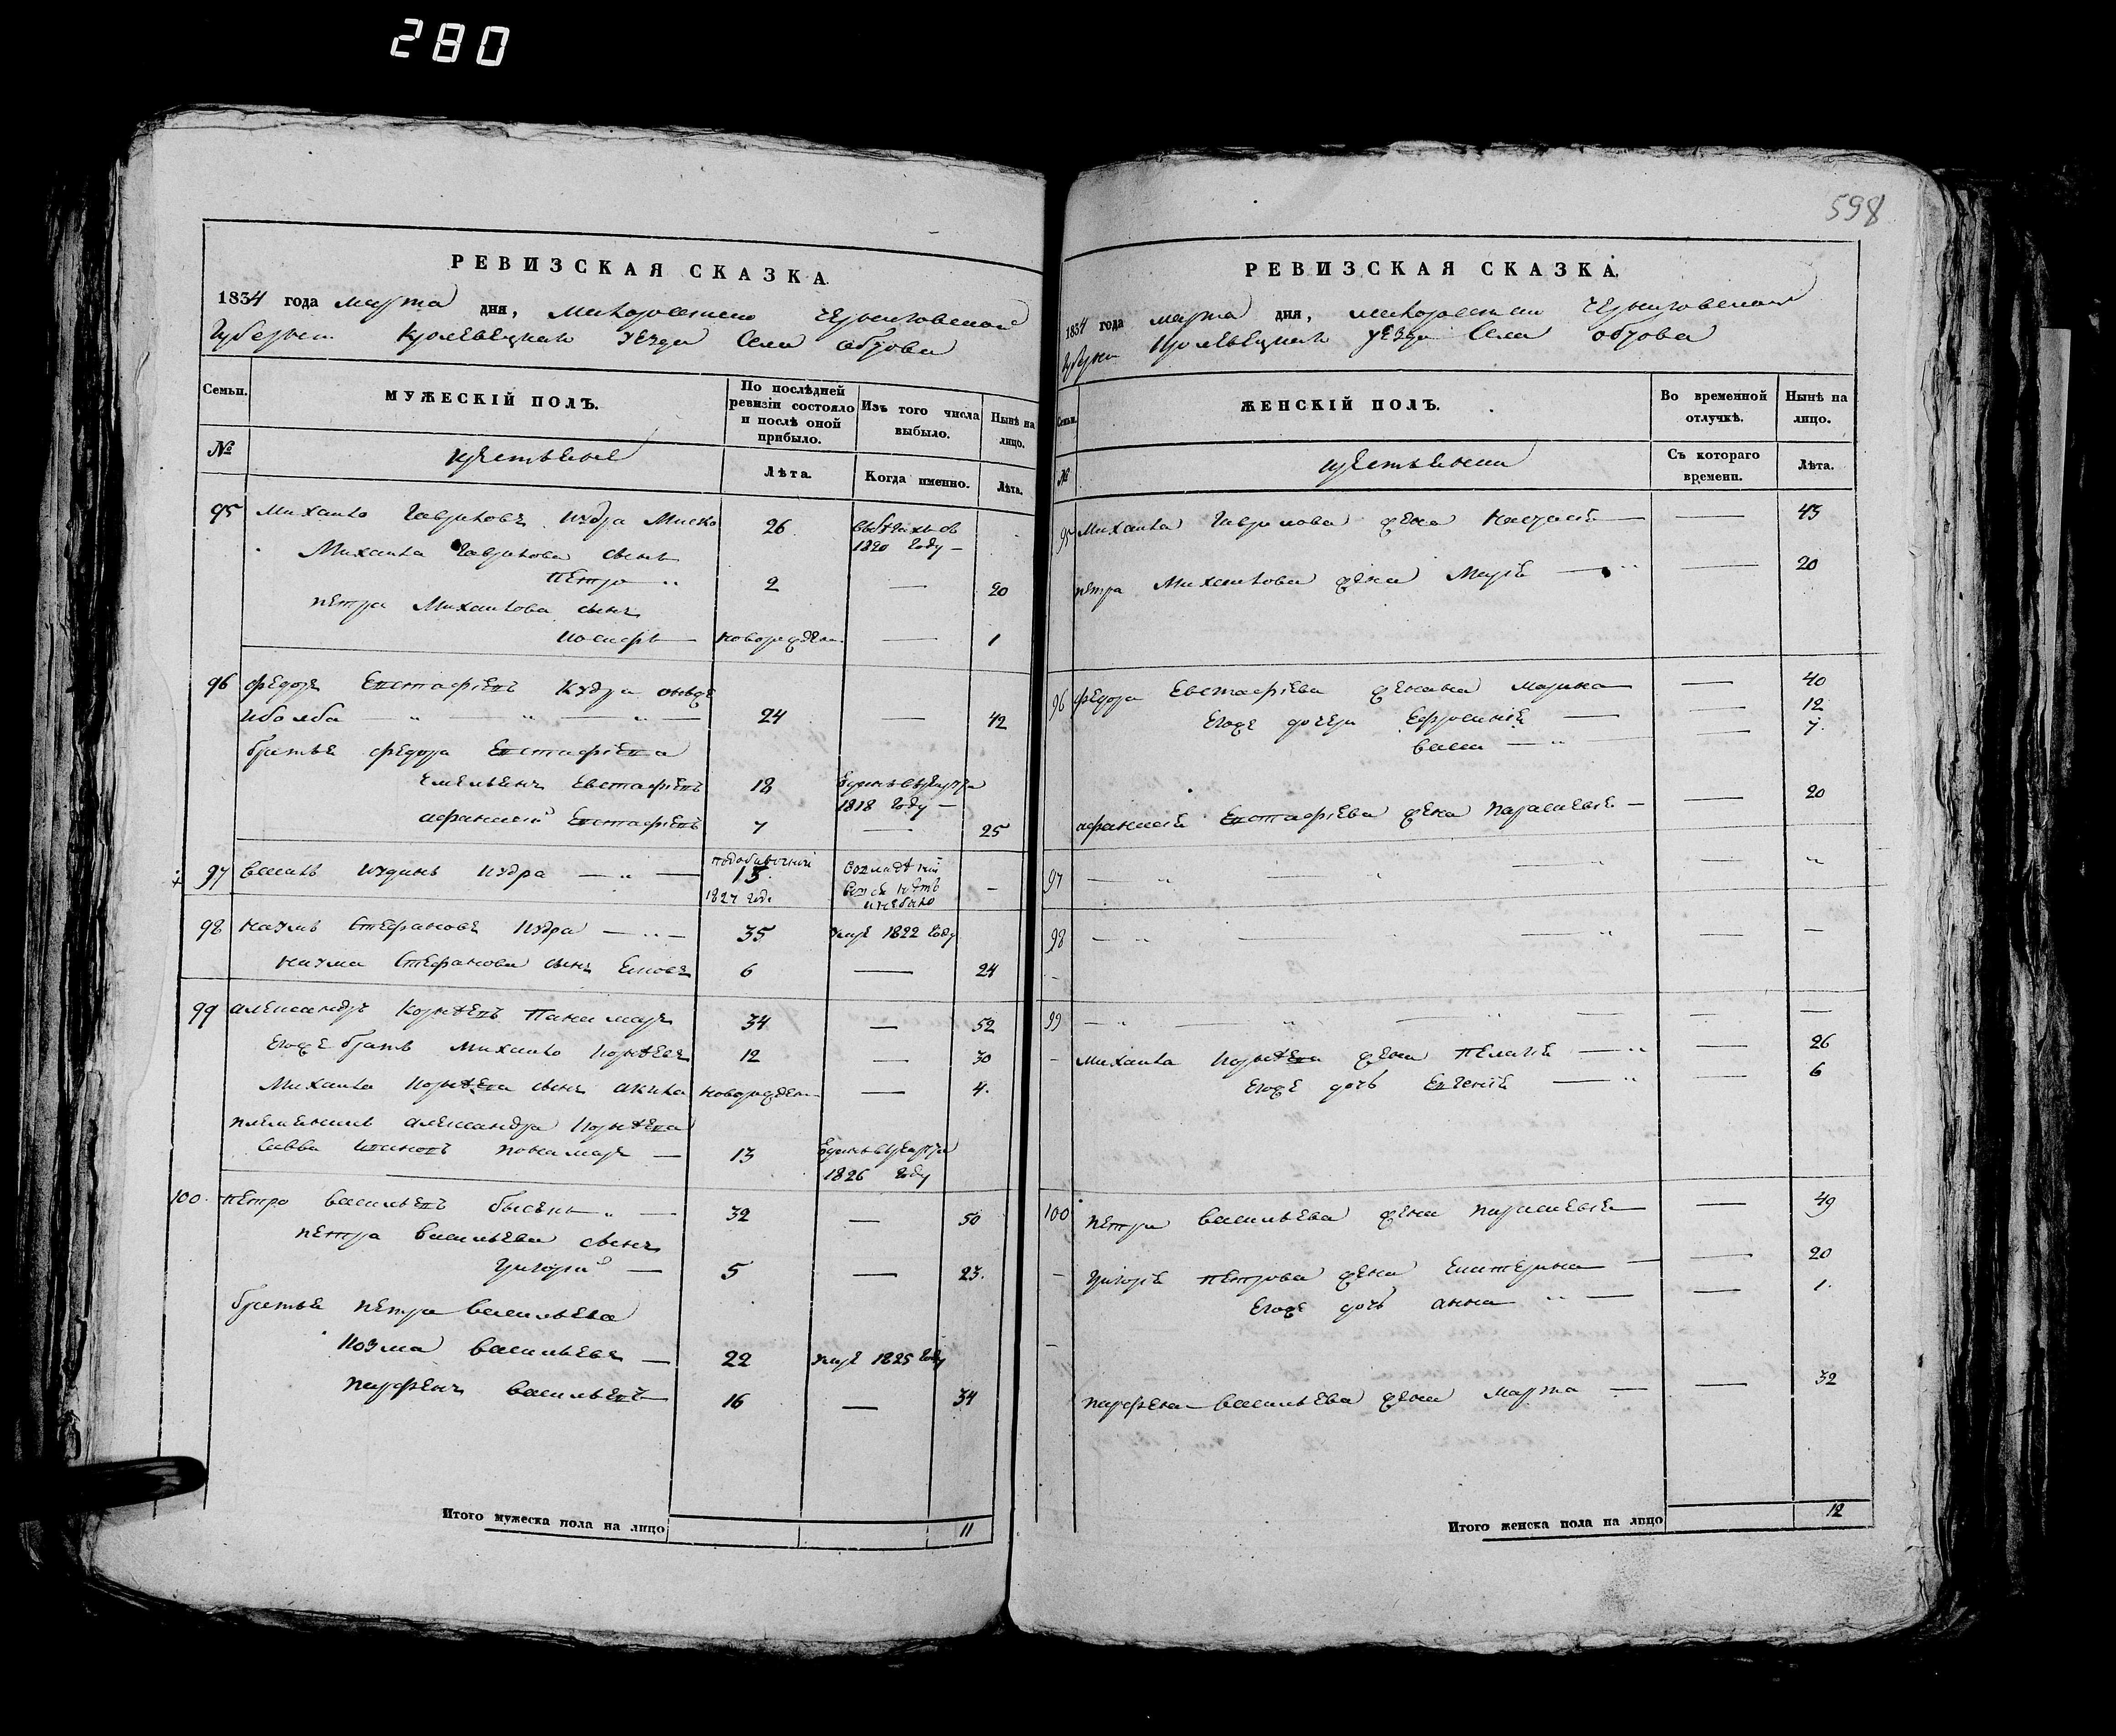 280
598
РЕВИЗСКАЯ СКАЗКА.
1834 года марта дня, Малороссиско Черниговской
Губернии Кролевецкаго уезда Села Обтова
Семьи.
МУЖЕСКІЙ ПОЛЪ.
По послѣдней ревизіи состояло и послѣ оной прибыло.
Изъ того числа выбыло.
Нынѣ на лицо.
№
Лѣта.
Когда именно.
Лѣта.
95 Михайло Гавриловъ Кудра 26 1820 году —
Михайла Гаврилова сынъ
Петро 2 — 20
Петра Михайлова сынъ
Іосифъ — новорожден. — 1
96 Федоръ Евстафіевъ Кудра онъже
24 — 42
братья Федора Евстафіева
Емельянъ Евстафіевъ 18
1818 году —
Афанасій Евстафіевъ 7 — 25
97 Кудра — " — 15 —
1827 года
98 Наумъ Стефановъ Кудра — " — 35 умре 1822 году
Наума Стефанова сынъ 6 — 24
99 Александръ Корнѣевъ Панамаръ 34 — 52
Егоже братъ Михайло Корнѣевъ 12 — 30
Михайла Корнѣева сынъ Акила новорожден. — 4.
племенникъ Александра Корнѣева
Савва Понамаръ — 13
1826 году
100. Петро Васильевъ " — 32 — 50
Петра Васильева сынъ
Григорій — 5 — 23.
братья Петра Васильева
Козма Васильевъ — 22 умре 1825 году
Парфенъ Васильевъ 16 — 34
Итого мужеска пола на лицо 11
РЕВИЗСКАЯ СКАЗКА.
1834 года марта дня, Малороссиско Черниговской
Губернии Кролевецкаго уезда Села Обтова
Семьи.
ЖЕНСКІЙ ПОЛЪ.
Во временной отлучкѣ.
Нынѣ на лицо.
№
Съ котораго времени.
Лѣта.
95 Михайла Гаврилова жена Настасія — — 43
Петра Михайлова жена Марія — " — 20
96 Федора Евстафіева жена Марина — — 40
Егоже дочери Ефросинія — — 12
— " — 7.
Афанасія Евстафіева жена Парасковія — — 20
97 — " — " — " — "
98 — " — — " — —
99 — " — " — " — — —
Михайла Корнѣева жена Пелагія — " — 26
Егоже дочь Евгенія — " — 6
100 Петра Васильева жена Парасковія — — 49
Григорія Петрова жена Екатерина — — 20
Егоже дочь Анна " — — 1.
Парфена Васильева жена Марфа — — 32
Итого женска пола на лицо 12